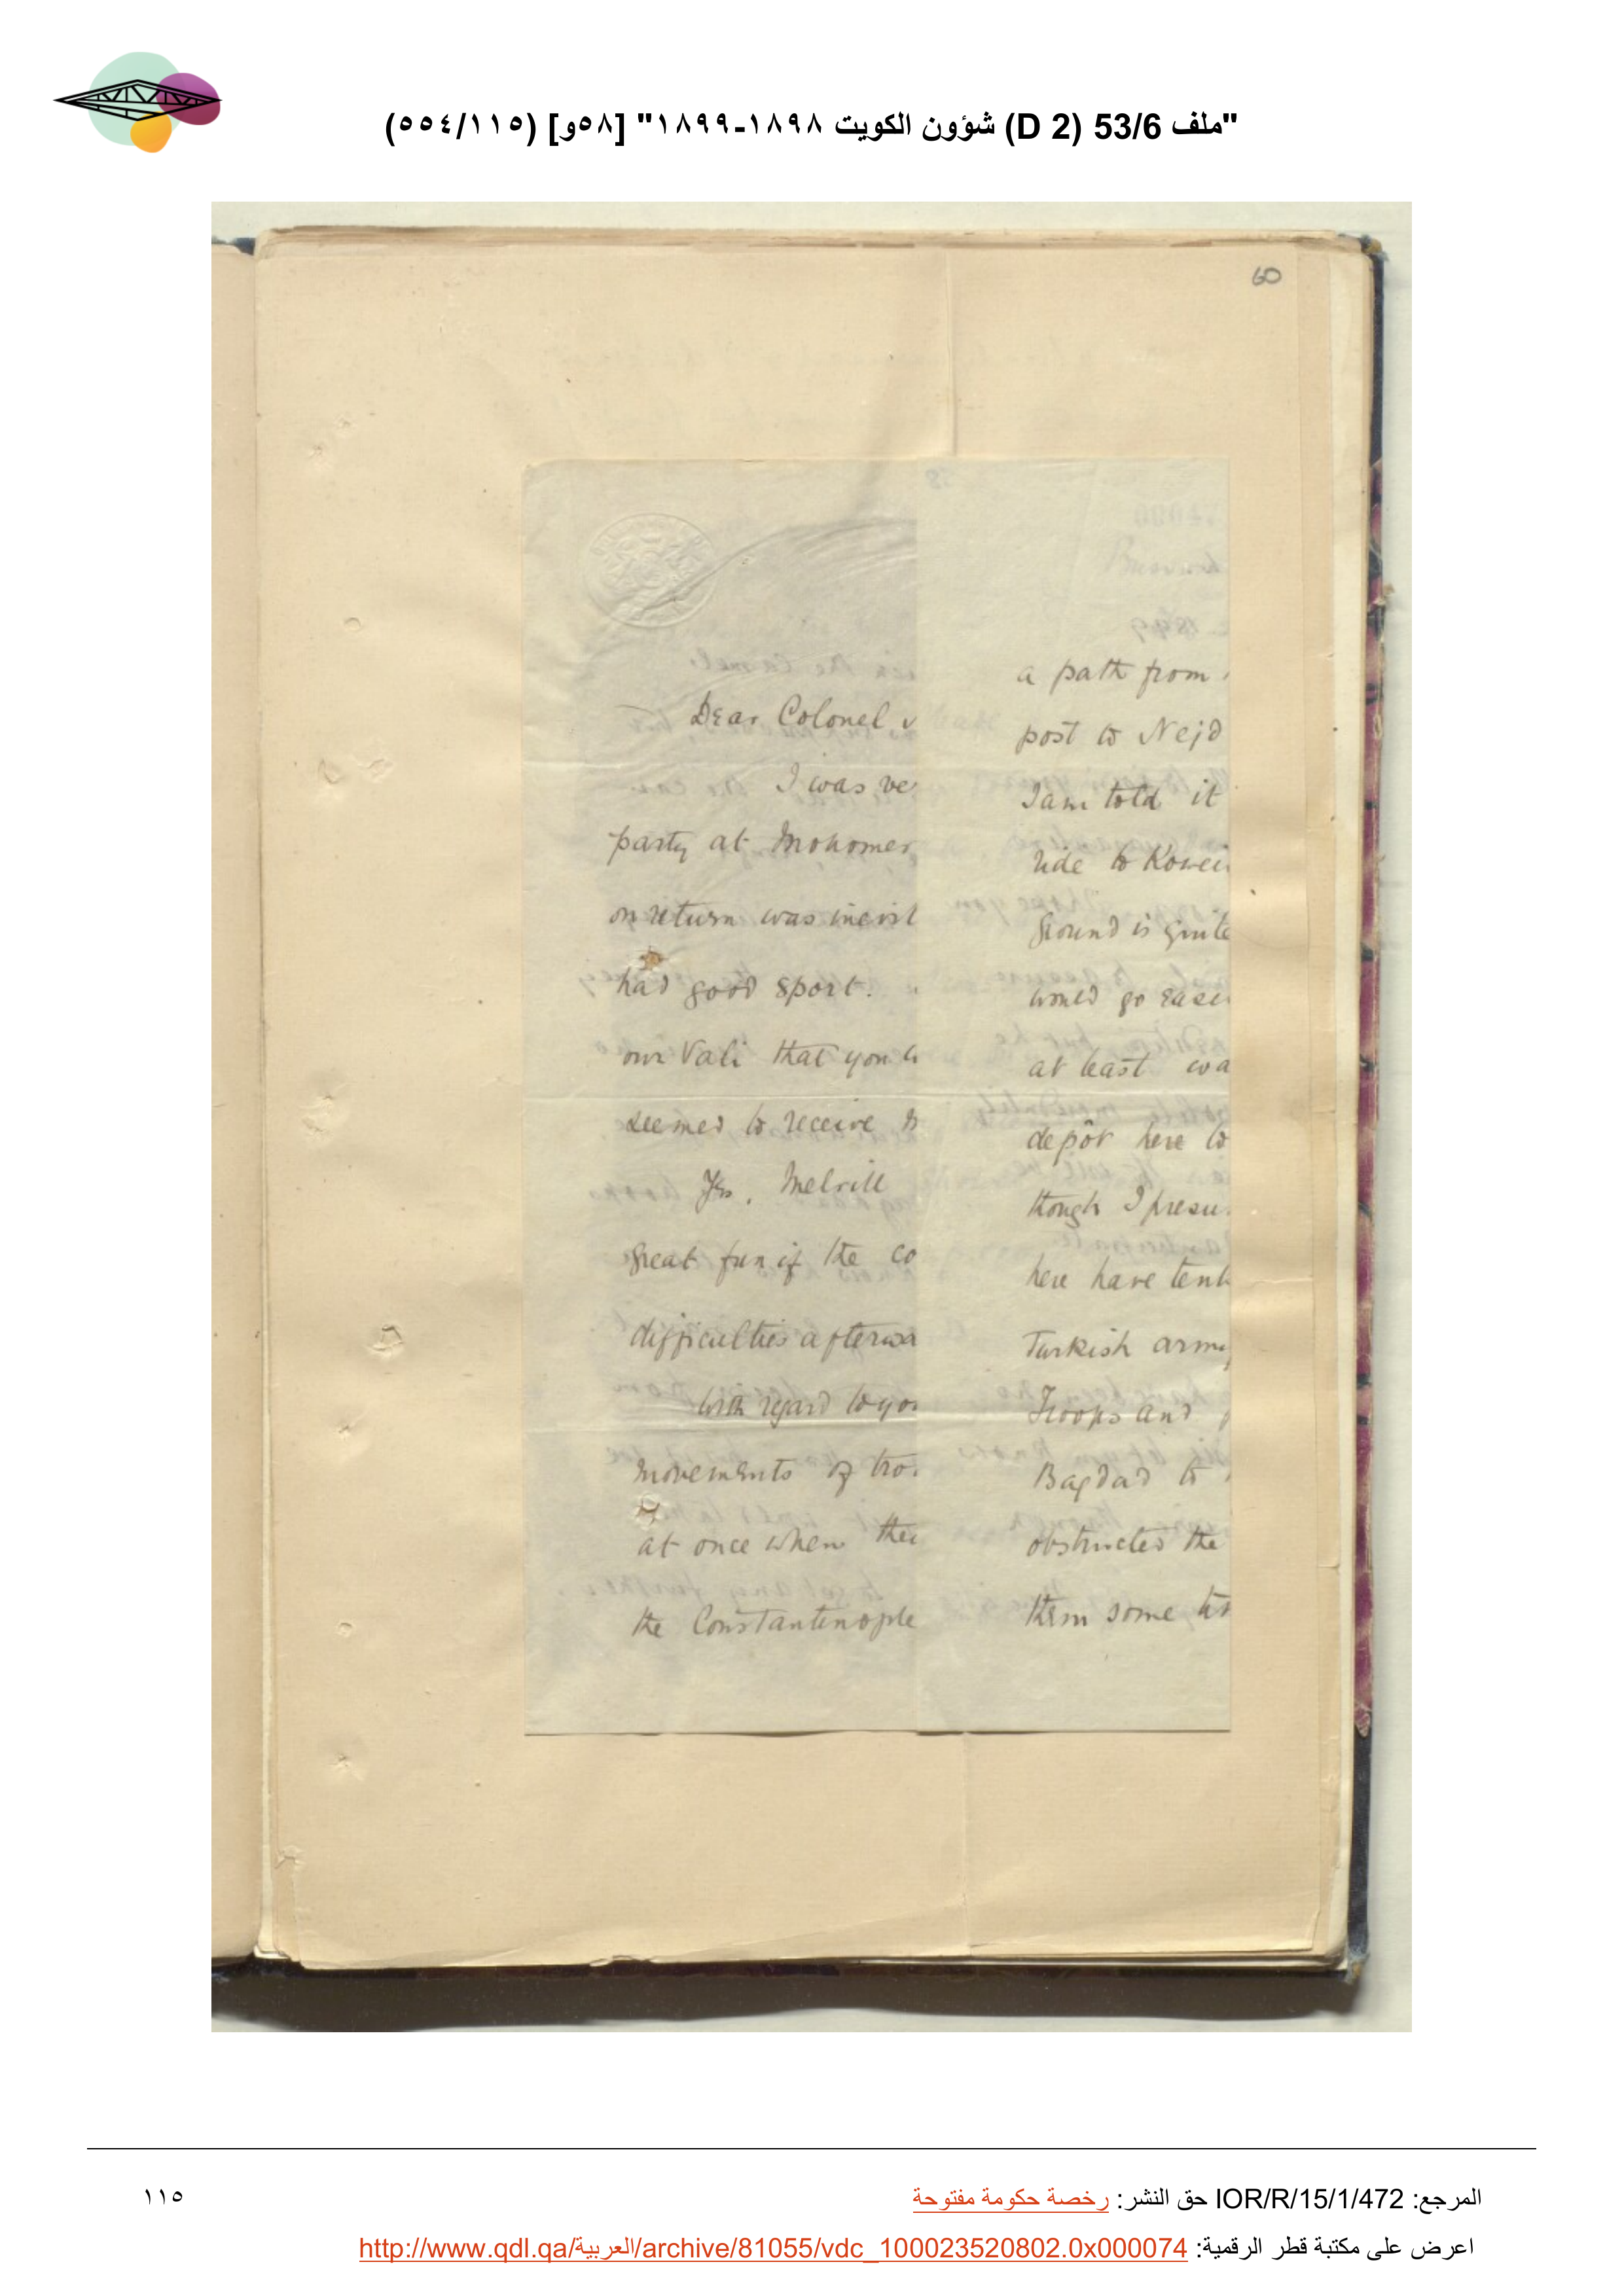 "ملف 53/6 (D 2) شؤون الكويت ١٨٩٨-١٨٩٩" [٥٨و] (٥٥٤/١١٥)
60
Dear Colonel
I was ve
party at Mohomer
on return was inevit
had good sport.
our Vali that you
seemed to receive
Yes, Melvill
great fun if the co
difficulties afterwa
With regard to you
movements of tro
at once when thei
the Constantinople
a path from
post to Nejd
I am told it
ride to Kowei
ground is quite
would go easi
at least wa
depôt here to
though I presu
here have tent
Turkish army
Troops and
Bagdad to
obstructed the
them some
المرجع: IOR/R/15/1/472 حق النشر: رخصة حكومة مفتوحة
١١٥
اعرض على مكتبة قطر الرقمية: http://www.qdl.qa/العربية/archive/81055/vdc_100023520802.0x000074